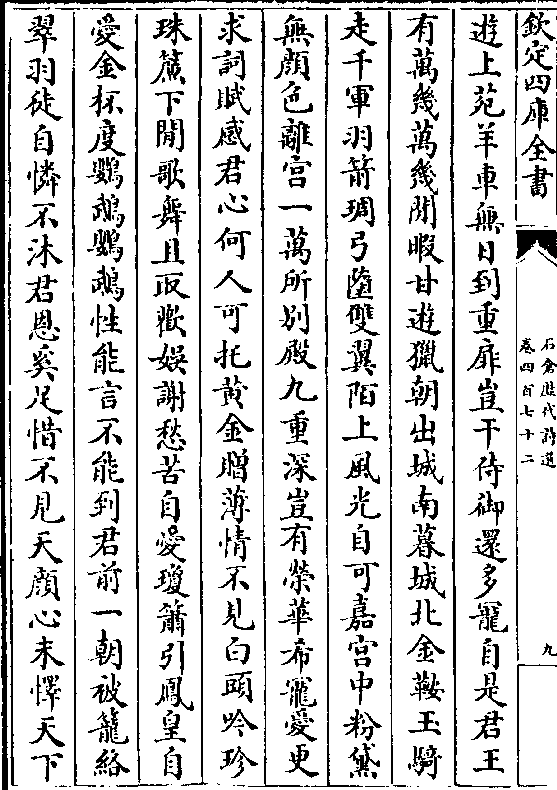 欽定四庫全書
石倉歷代詩選
卷四百七十二
九
遊上苑羊車無日到重扉豈干侍御還多寵自是君王
有萬幾萬幾閒暇甘遊獵朝出城南暮城北金鞍玉騎
走千軍羽箭琱弓墮雙翼陌上風光自可嘉宮中粉黛
無顔色離宫一萬所别殿九重深豈有榮華希寵愛更
求詞賦感君心何人可托黄金贈薄情不見白頭吟珍
珠簾下閒歌舞且取歡娛謝愁苦自愛瓊簫引鳳皇自
愛金杯度鸚鵡鸚鵡性能言不能到君前一朝被籠絡
翠羽徒自憐不沐君恩奚足惜不見天顔心未懌天下